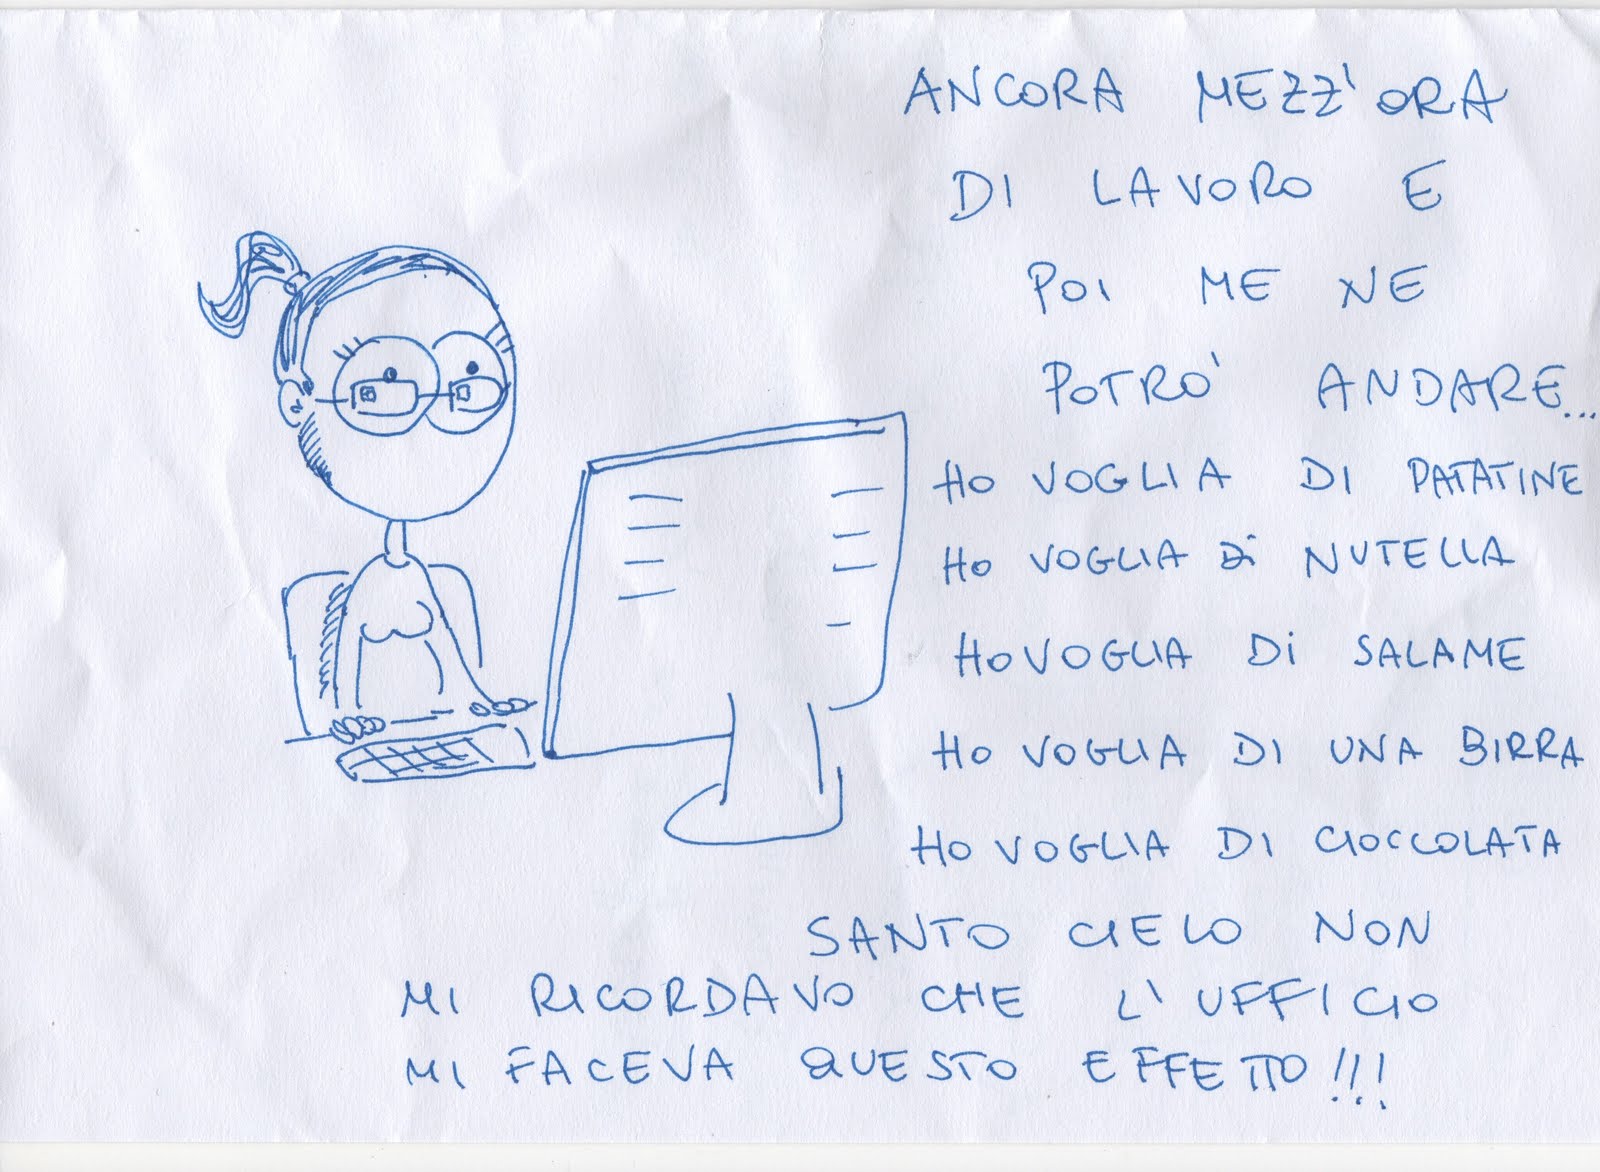 ANCORA MEZZ'ORA
DI LAVORO E
POI ME NE
POTRO' ANDARE...
HO VOGLIA DI PATATINE
HO VOGLIA Di NUTELLA
HO VOGLIA Di SALAME
HO VOGLIA DI UNA BIRRA
HO VOGLIA DI CIOCCOLATA
SANTO CIELO NON
MI RICORDAVO CHE L'UFFICIO
MI FACEVA QUESTO EFFETTO!!!